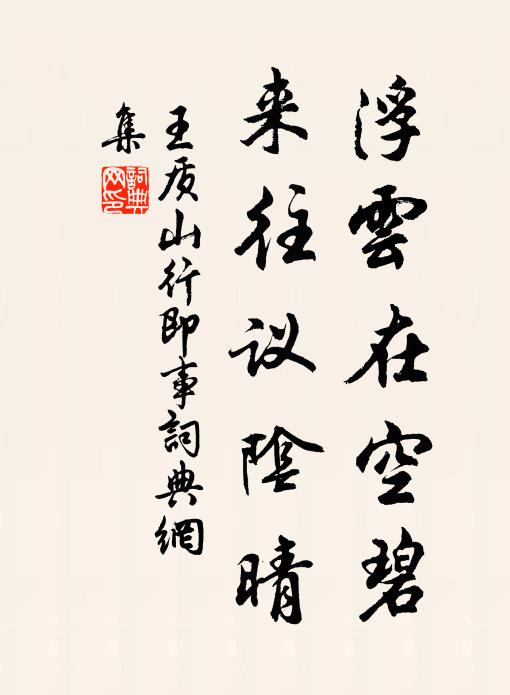 浮雲在空碧
来往议陰晴
王质山行即事詞典網
集
詞典
网印